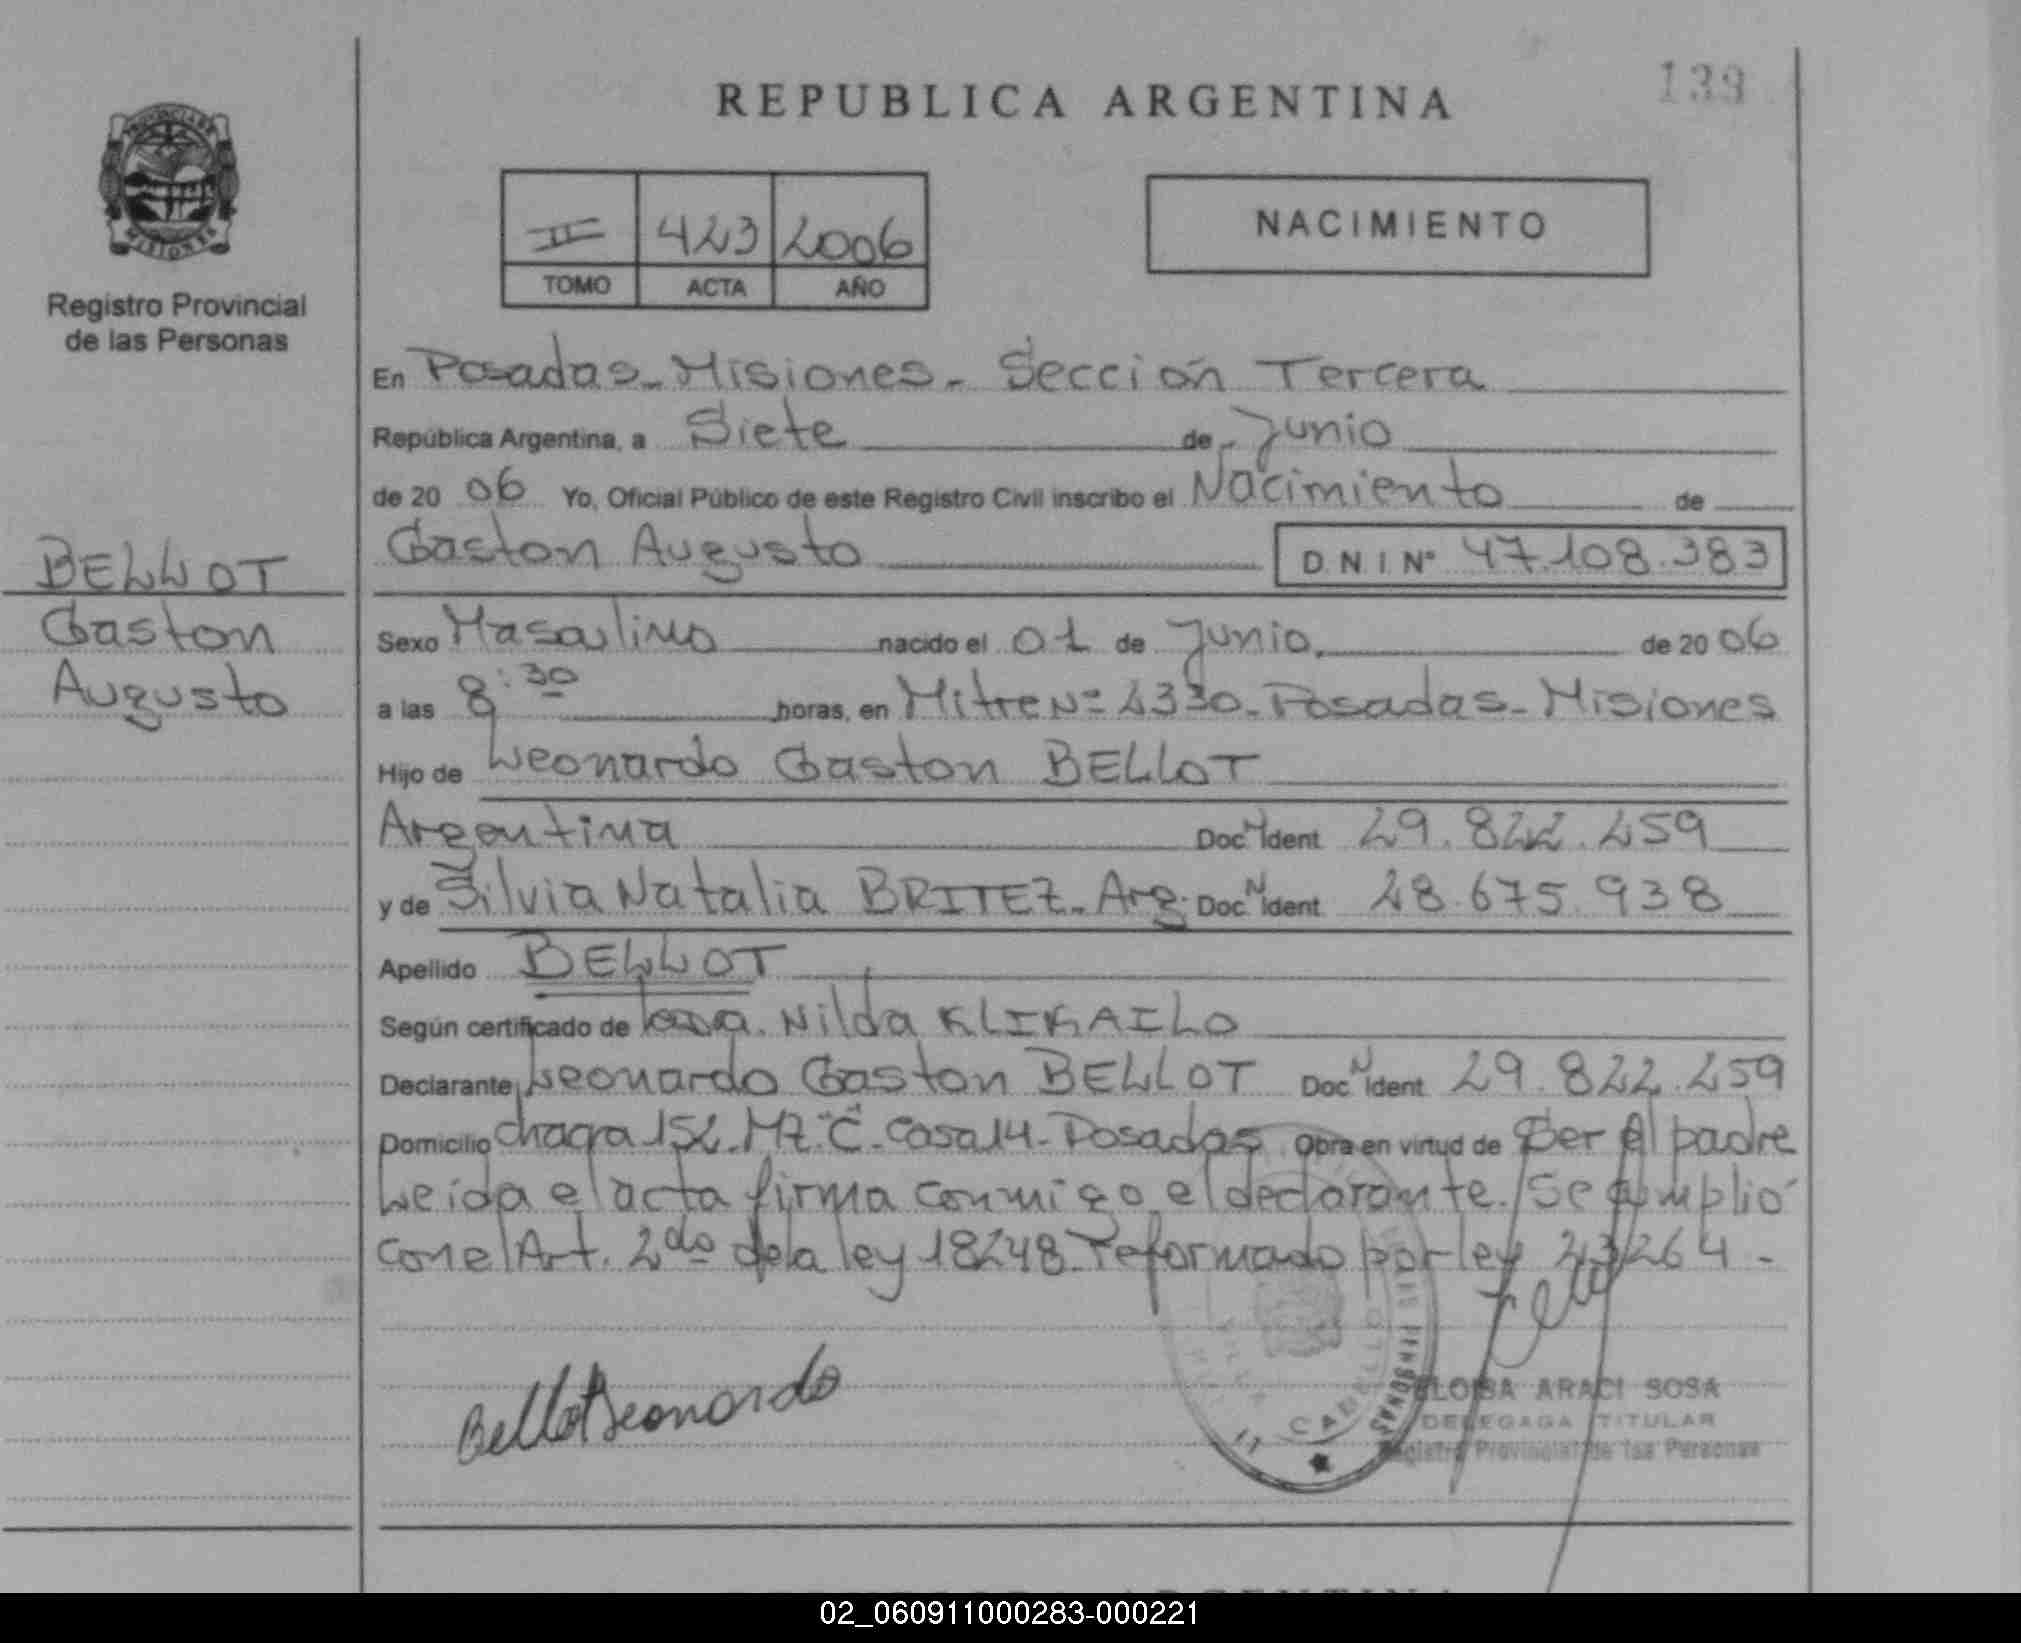 REPUBLICA ARGENTINA
139
PROVINCIA DE
MISIONES
Registro Provincial
de las Personas
II 423 2006
TOMO ACTA AÑO
NACIMIENTO
En Posadas - Misiones - Sección Tercera
República Argentina, a Siete de Junio
de 20 06 Yo, Oficial Público de este Registro Civil inscribo el Nacimiento de
BELLOT
Gaston
Augusto
Gaston Augusto D N I Nº 47.108.383
Sexo Masculino nacido el 01 de Junio de 20 06
a las 8:30 horas, en Mitre Nº 2330 - Posadas - Misiones
Hijo de Leonardo Gaston BELLOT
Argentina Doc. N Ident 29.822.259
y de Silvia Natalia BRITEZ - Arg. Doc. N Ident 28.675.938
Apellido BELLOT
Según certificado de Nilda KLIKAILO
Declarante Leonardo Gaston BELLOT Doc. N Ident 29.822.259
Domicilio chacra 152 - Mz "C" - Casa 14 - Posadas Obra en virtud de Ser el padre
Leida el acta firma conmigo el declarante. Se cumplió
con el Art. 2do de la ley 18248 - reformado por ley 23264 -
Bellot Leonardo
PERSONAS
ELOISA ARACI SOSA
DELEGADA TITULAR
Registro Provincial de las Personas
02_060911000283-000221